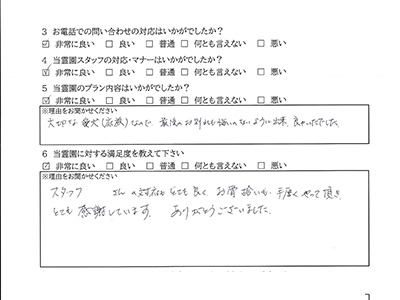 3 お電話での問い合わせの対応はいかがでしたか?
☑ 非常に良い ☐ 良い ☐ 普通 ☐ 何とも言えない ☐ 悪い
4 当霊園スタッフの対応・マナーはいかがですか?
☑ 非常に良い ☐ 良い ☐ 普通 ☐ 何とも言えない ☐ 悪い
5 当霊園のプラン内容はいかがでしたか?
☑ 非常に良い ☐ 良い ☐ 普通 ☐ 何とも言えない ☐ 悪い
※理由をお聞かせください
大切な愛犬(家族)なので、最後のお別れも悔いのないように出来、良かったでした。
6 当霊園に対する満足度を教えて下さい
☑ 非常に良い ☐ 良い ☐ 普通 ☐ 何とも言えない ☐ 悪い
※理由をお聞かせください
スタッフ さんの対応がとても良く、お骨拾いも、手厚くやって頂き、
とても感謝しています。 ありがとうございました。